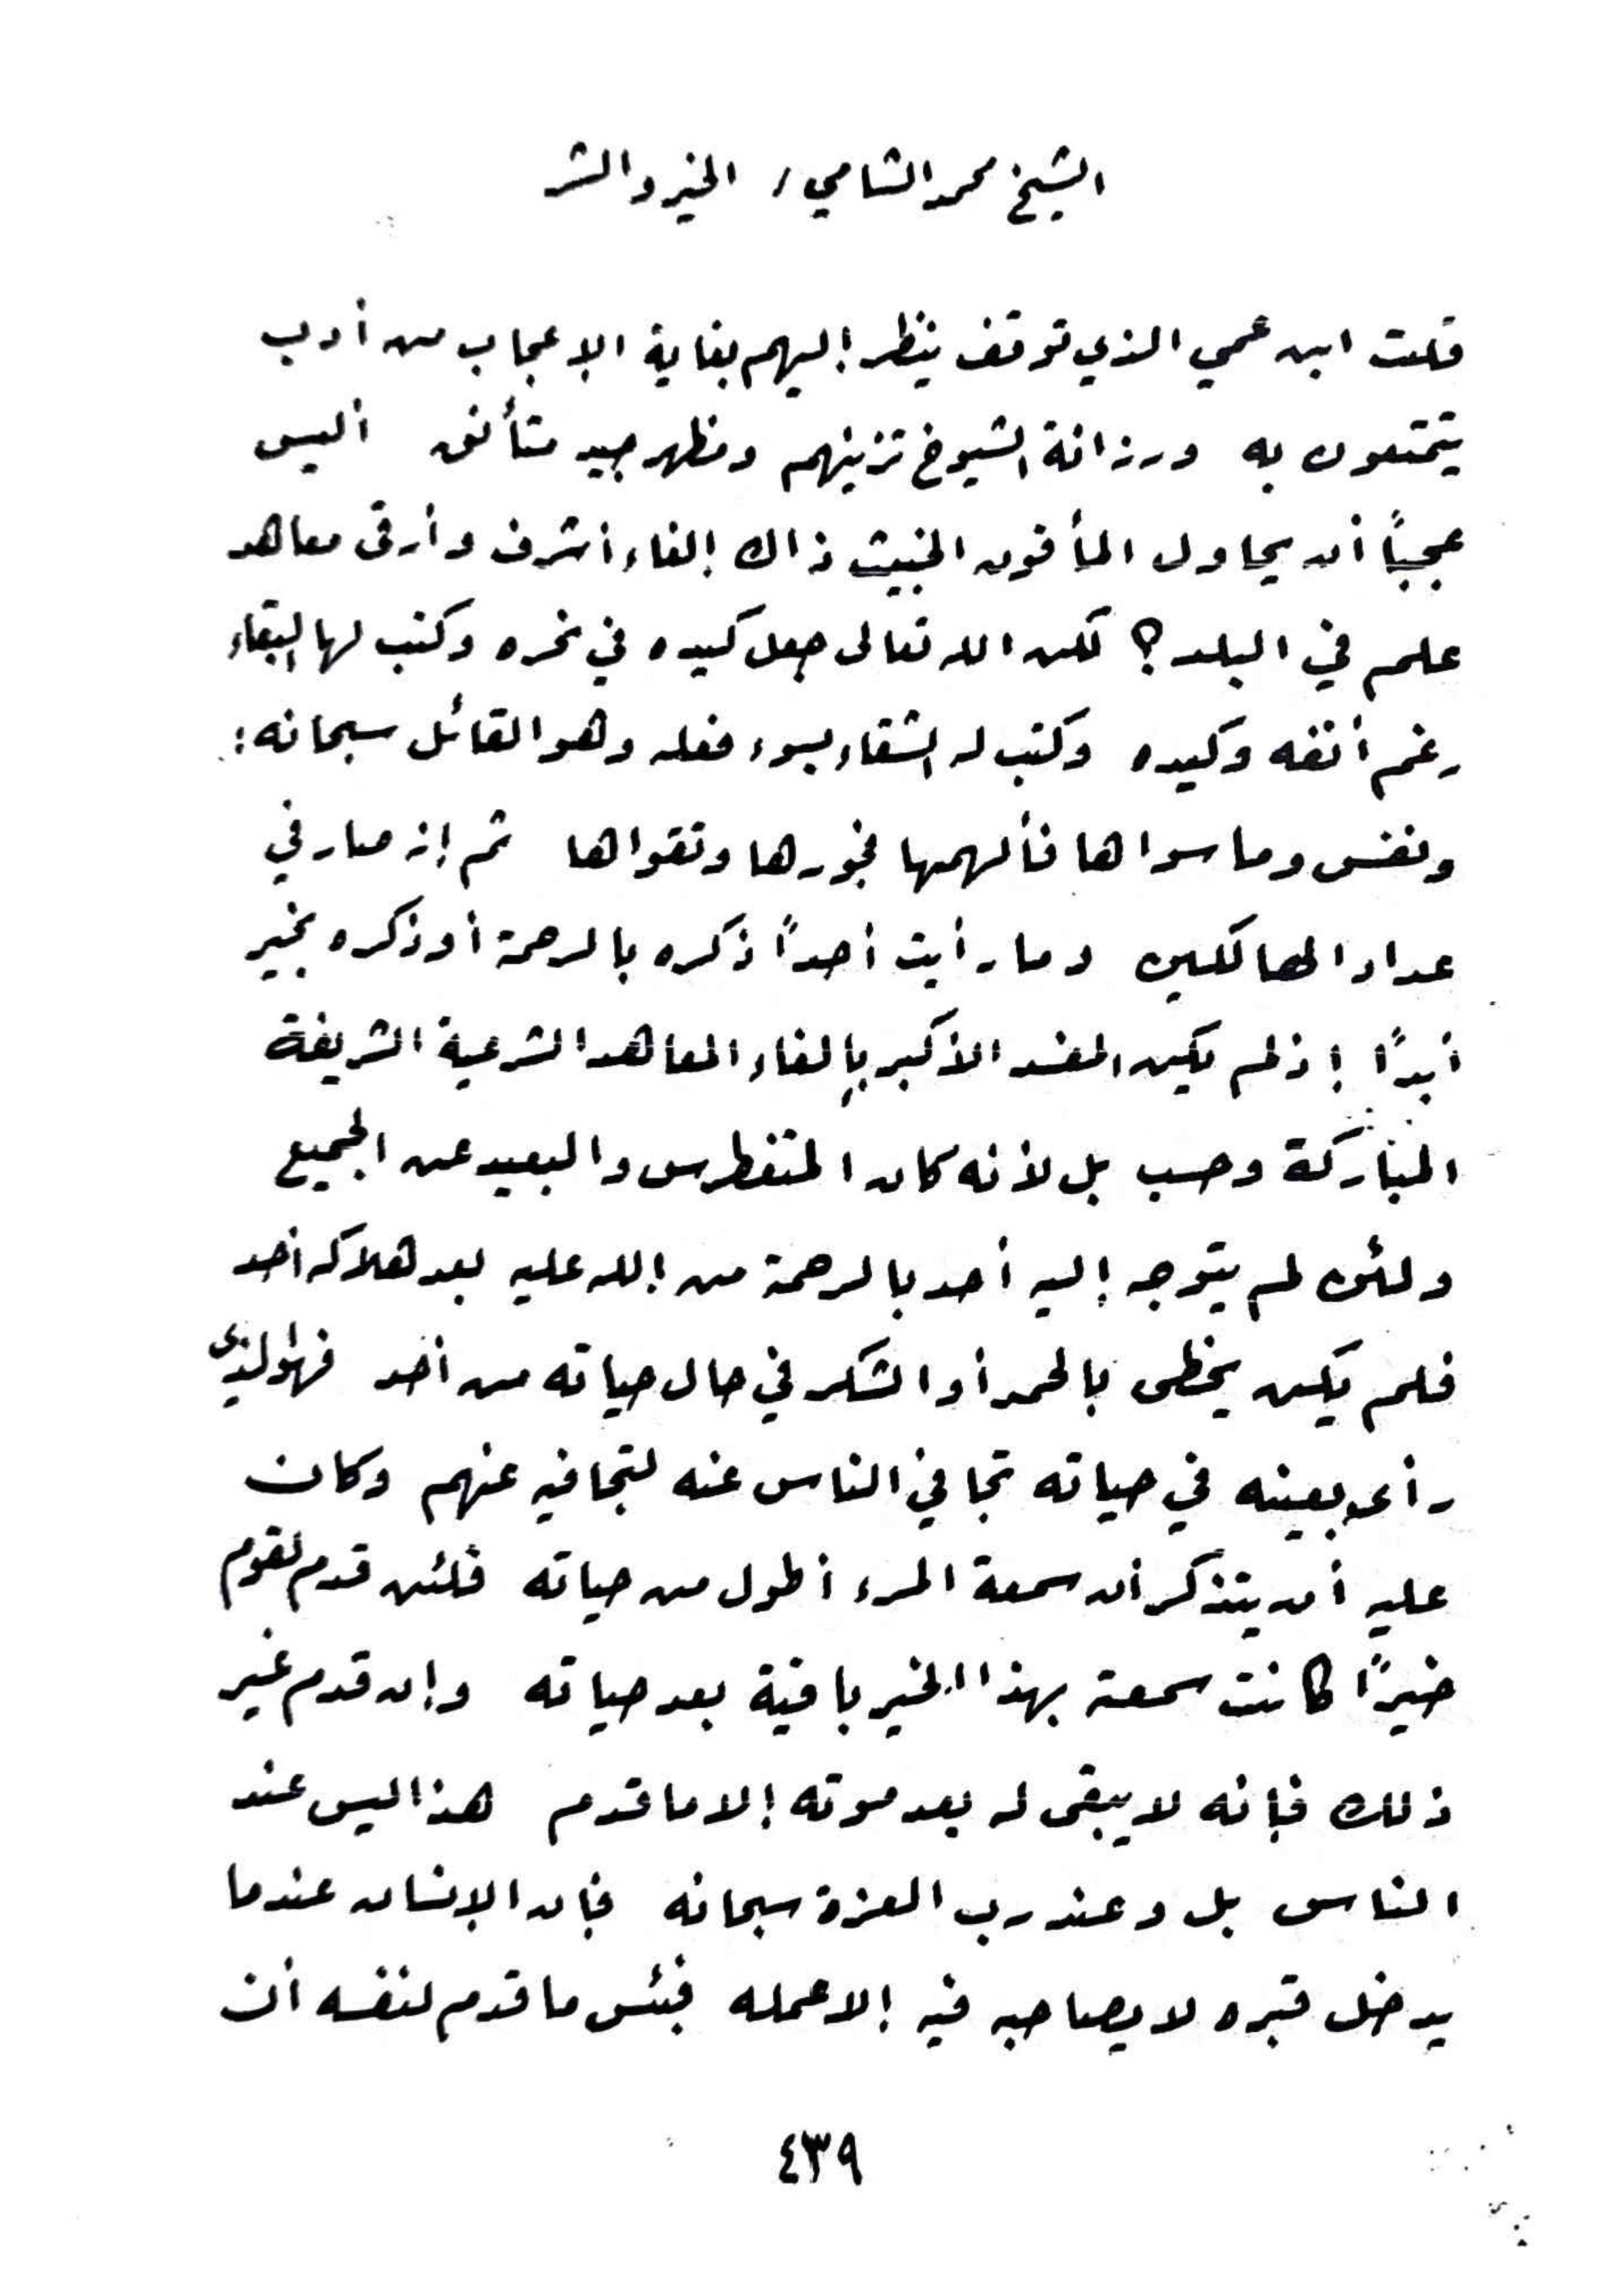 الشيخ محمد الشامي / الخير والشر
قلت ابن عمي الذي توقف ينظر إليهم بغاية الإعجاب من أدب
يتمتعون به ورزانة الشيوخ تزينهم ومظهر جيد متأنق أليس
عجيباً أن يحاول المأفون الخبيث ذاك إلغاء أشرف وأرقى معاهد
علم في البلد؟ لكن الله تعالى جعل كيده في نحره وكتب لها البقاء
رغم أنفه وكيده وكتب له الشقاء بسوء فعله وهو القائل سبحانه:
ونفس وما سواها فألهمها فجورها وتقواها ثم إنه صار في
عداد الهالكين وما رأيت أحداً ذكره بالرحمة أو ذكره بخير
أبدًا إذ لم يكن المفسد الأكبر بإلغاء المعاهد الشرعية الشريفة
المباركة وحسب بل لأنه كان المتغطرس والبعيد عن الجميع
ولئن لم يتوجه إليه أحد بالرحمة من الله عليه بعد هلاكه أحد
فلم يكن يحظى بالحمد أو الشكر في حال حياته من أحد فهو الذي
رأى بعينه في حياته تجافي الناس عنه لتجافيه عنهم وكان
عليه أن يتذكر أن سمعة المرء أطول من حياته فلئن قدم لقوم
خيرًا كانت سمعته بهذا الخير باقية بعد حياته وإن قدم غير
ذلك فإنه لا يبقى له بعد موته إلا ما قدم هذا ليس عند
الناس بل وعند رب العزة سبحانه فإن الإنسان عندما
يدخل قبره لا يصاحبه فيه إلا عمله فبئس ما قدم لنفسه أن
٤٣٩